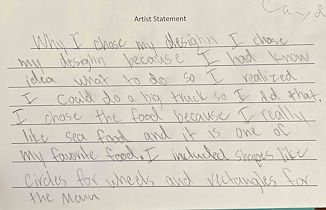 Artist Statement
Why I chose my desighn I chose
my desighn because I had know
idea what to do so I realized
I could do a big truck so I did that.
I chose the food because I really
like sea food and it is one of
my favorite food. I included shapes like
Circles for wheels and rectangles for
the Main